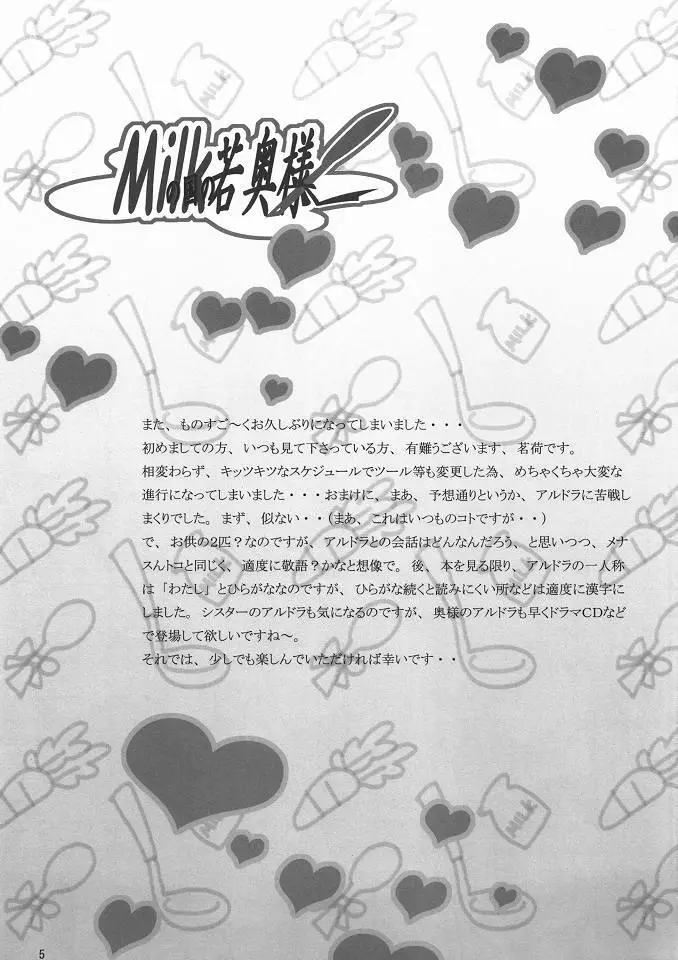 Milkの国の若奥様
また、ものすご～くお久しぶりになってしまいました・・・
初めましての方、いつも見て下さっている方、有難うございます、茗荷です。
相変わらず、キッツキツなスケジュールでツール等も変更した為、めちゃくちゃ大変な
進行になってしまいました・・・おまけに、まあ、予想通りというか、アルドラに苦戦し
まくりでした。まず、似ない・・(まあ、これはいつものコトですが・・)
で、お供の2匹？なのですが、アルドラとの会話はどんなんだろう、と思いつつ、メナ
スんトコと同じく、適度に敬語？かなと想像で。後、本を見る限り、アルドラの一人称
は「わたし」とひらがななのですが、ひらがな続くと読みにくい所などは適度に漢字に
しました。シスターのアルドラも気になるのですが、奥様のアルドラも早くドラマCDなど
で登場して欲しいですね～。
それでは、少しでも楽しんでいただければ幸いです・・
MILK
MILK
MILK
MILK
MILK
5